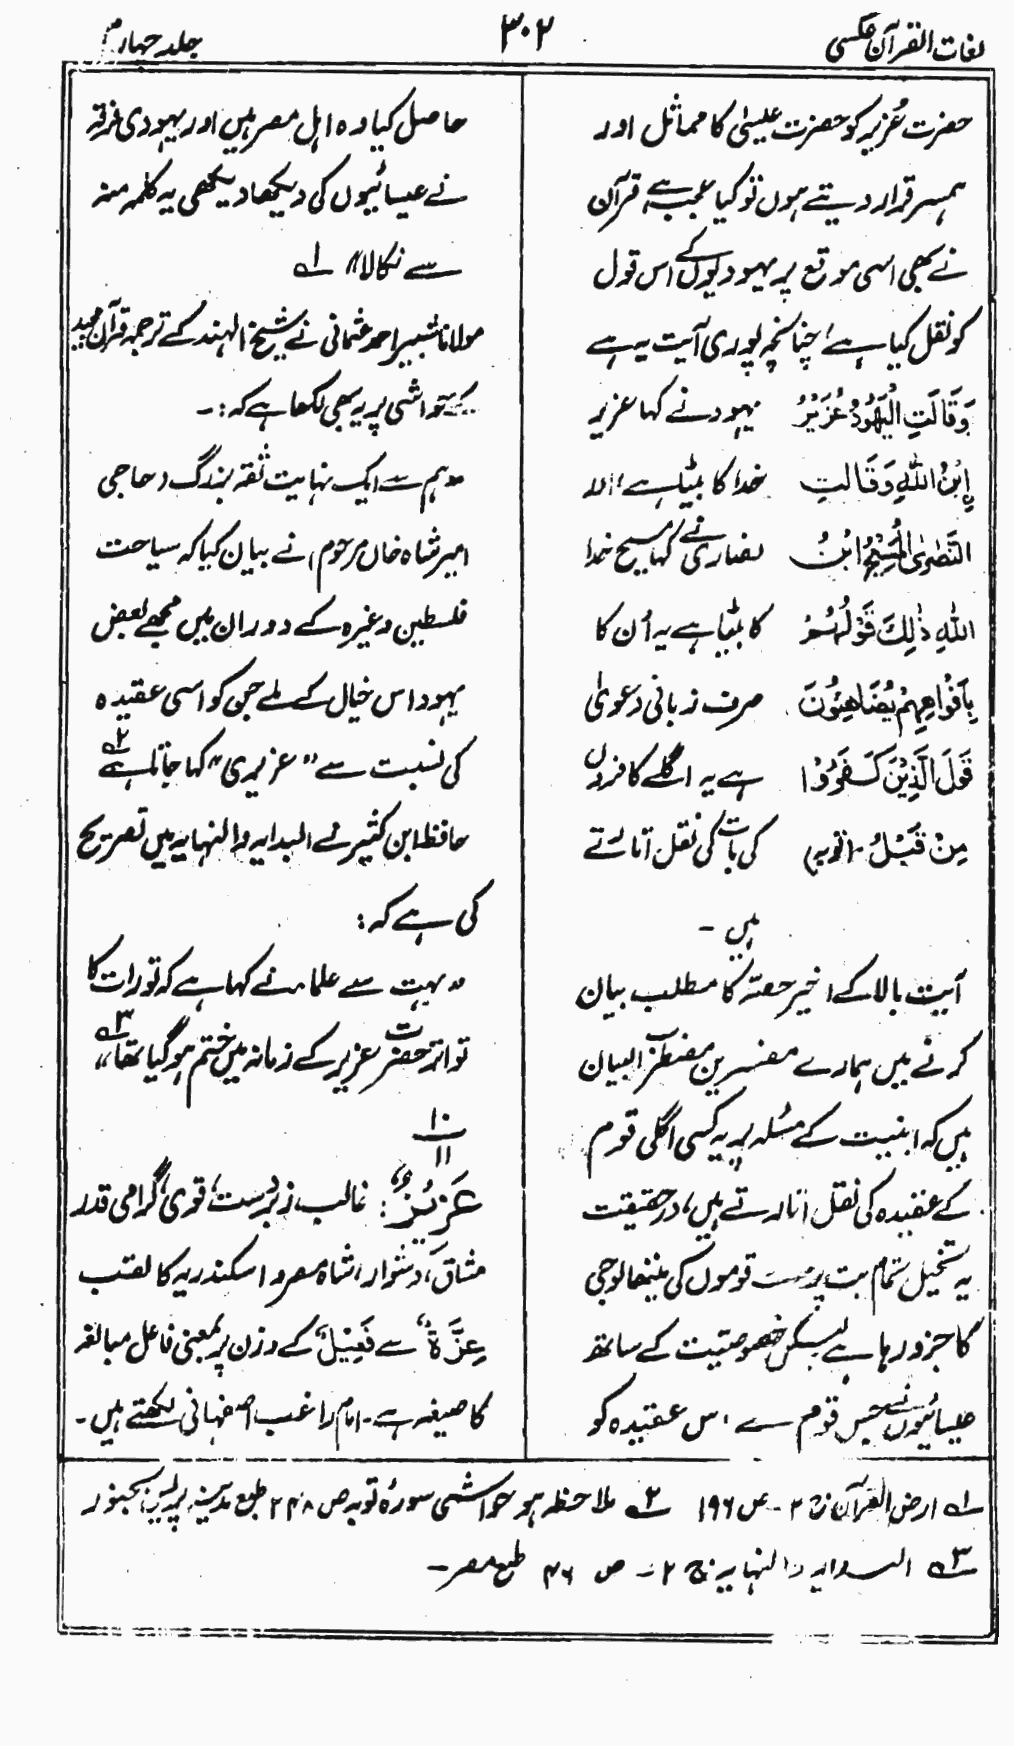 لغات القرآن عکسی
۳۰۲
جلد چہارم
حضرت عُزیر کو حضرت عیسیٰ کا مماثل اور
ہمسر قرار دیتے ہوں تو کیا عجب ہے، قرآن
نے بھی اسی موقع پر یہودیوں کے اس قول
کو نقل کیا ہے، چنانچہ پوری آیت یہ ہے
وَقَالَتِ الْيَهُوْدُ عُزَيْرُ یہود نے کہا عزیر
ابْنُ اللّٰهِ وَقَالَتِ خدا کا بیٹا ہے، اور
النَّصٰرَى الْمَسِيْحُ ابْنُ نصاریٰ نے کہا مسیح خدا
اللّٰهِ ذٰلِكَ قَوْلُهُمْ کا بیٹا ہے یہ اُن کا
بِاَفْوَاهِهِمْ يُضَاهِئُوْنَ صرف زبانی دعویٰ
قَوْلَ الَّذِيْنَ كَفَرُوْا ہے یہ اگلے کافروں
مِنْ قَبْلُ (توبہ) کی بات کی نقل اتارتے
ہیں ۔
آیت بالا کے اخیر حصّہ کا مطلب بیان
کرنے میں ہمارے مفسرین مضطرب البیان
ہیں کہ ابنیت کے مسئلہ پر یہ کسی اگلی قوم
کے عقیدہ کی نقل اتارتے ہیں، درحقیقت
یہ تخیل تمام بت پرست قوموں کی میتھالوجی
کا جزو رہا ہے لیکن خصوصیت کے ساتھ
عیسائیوں نے جس قوم سے اس عقیدہ کو
حاصل کیا وہ اہل مصر ہیں اور یہودی فرقہ
نے عیسائیوں کی دیکھا دیکھی یہ کلمہ منہ
سے نکالا" ۱ھ
مولانا شبیر احمد عثمانی نے شیخ الہند کے ترجمہ قرآن مجید
کے حواشی پر یہ بھی لکھا ہے کہ :۔
"ہم سے ایک نہایت ثقہ بزرگ (حاجی
امیر شاہ خاں مرحوم) نے بیان کیا کہ سیاحت
فلسطین وغیرہ کے دوران میں مجھے بعض
یہود اس خیال کے ملے جن کو اسی عقیدہ
کی نسبت سے "عزیری" کہا جاتا ہے ۲ھ
حافظ ابن کثیر نے البدایہ والنہایہ میں تصریح
کی ہے کہ :
"بہت سے علماء نے کہا ہے کہ تورات کا
تواتر حضرت عزیر کے زمانہ میں ختم ہو گیا تھا" ۳ھ
۱۰
۱۱
عَزِيْزٌ : غالب، زبردست، قوی، گرامی قدر
مشاق، دشوار، شاہ مصر و اسکندریہ کا لقب
عِزَّةٌ سے فَعِيْلٌ کے وزن پر بمعنی فاعل مبالغہ
کا صیغہ ہے ۔ امام راغب اصفہانی لکھتے ہیں ۔
۱ھ ارض القرآن ج ۲ ۔ ص ۱۹۶ ۲ھ ملاحظہ ہو حواشی سورۂ توبہ ص ۲۴۸ طبع مدینہ پریس بجنور
۳ھ البدایہ والنہایہ ج ۲ ۔ ص ۴۶ طبع مصر ۔